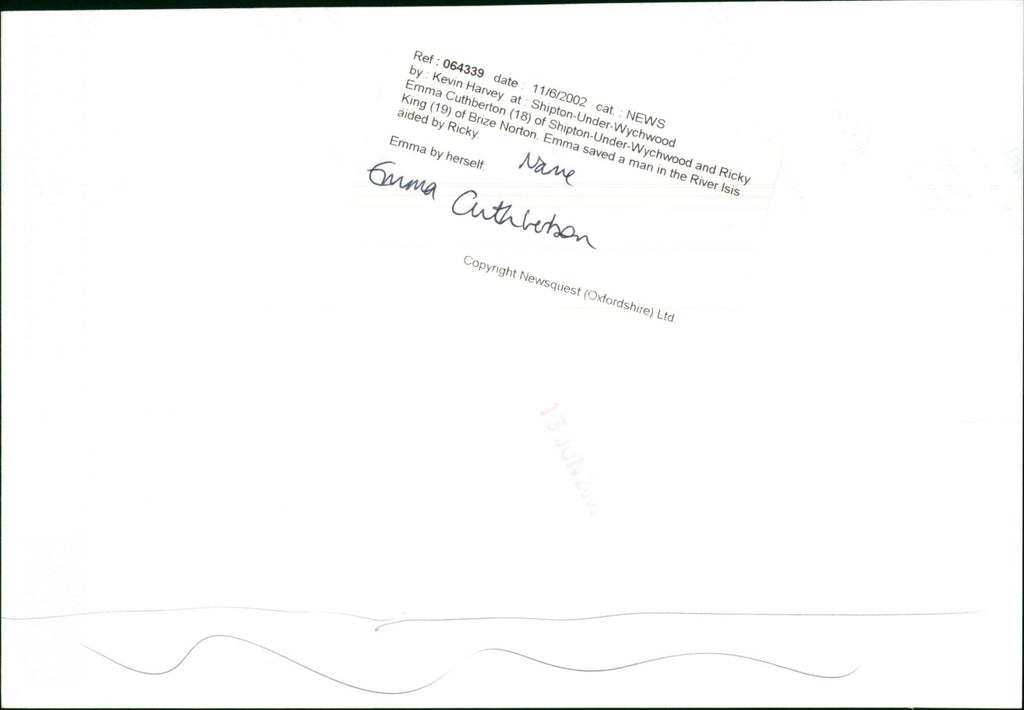 Ref : 064339 date : 11/6/2002 cat. : NEWS
by : Kevin Harvey at : Shipton-Under-Wychwood
Emma Cuthberton (18) of Shipton-Under-Wychwood and Ricky
King (19) of Brize Norton. Emma saved a man in the River Isis
aided by Ricky.
Emma by herself.
Name
Emma Cuthbertson
Copyright Newsquest (Oxfordshire) Ltd.
13 JUN